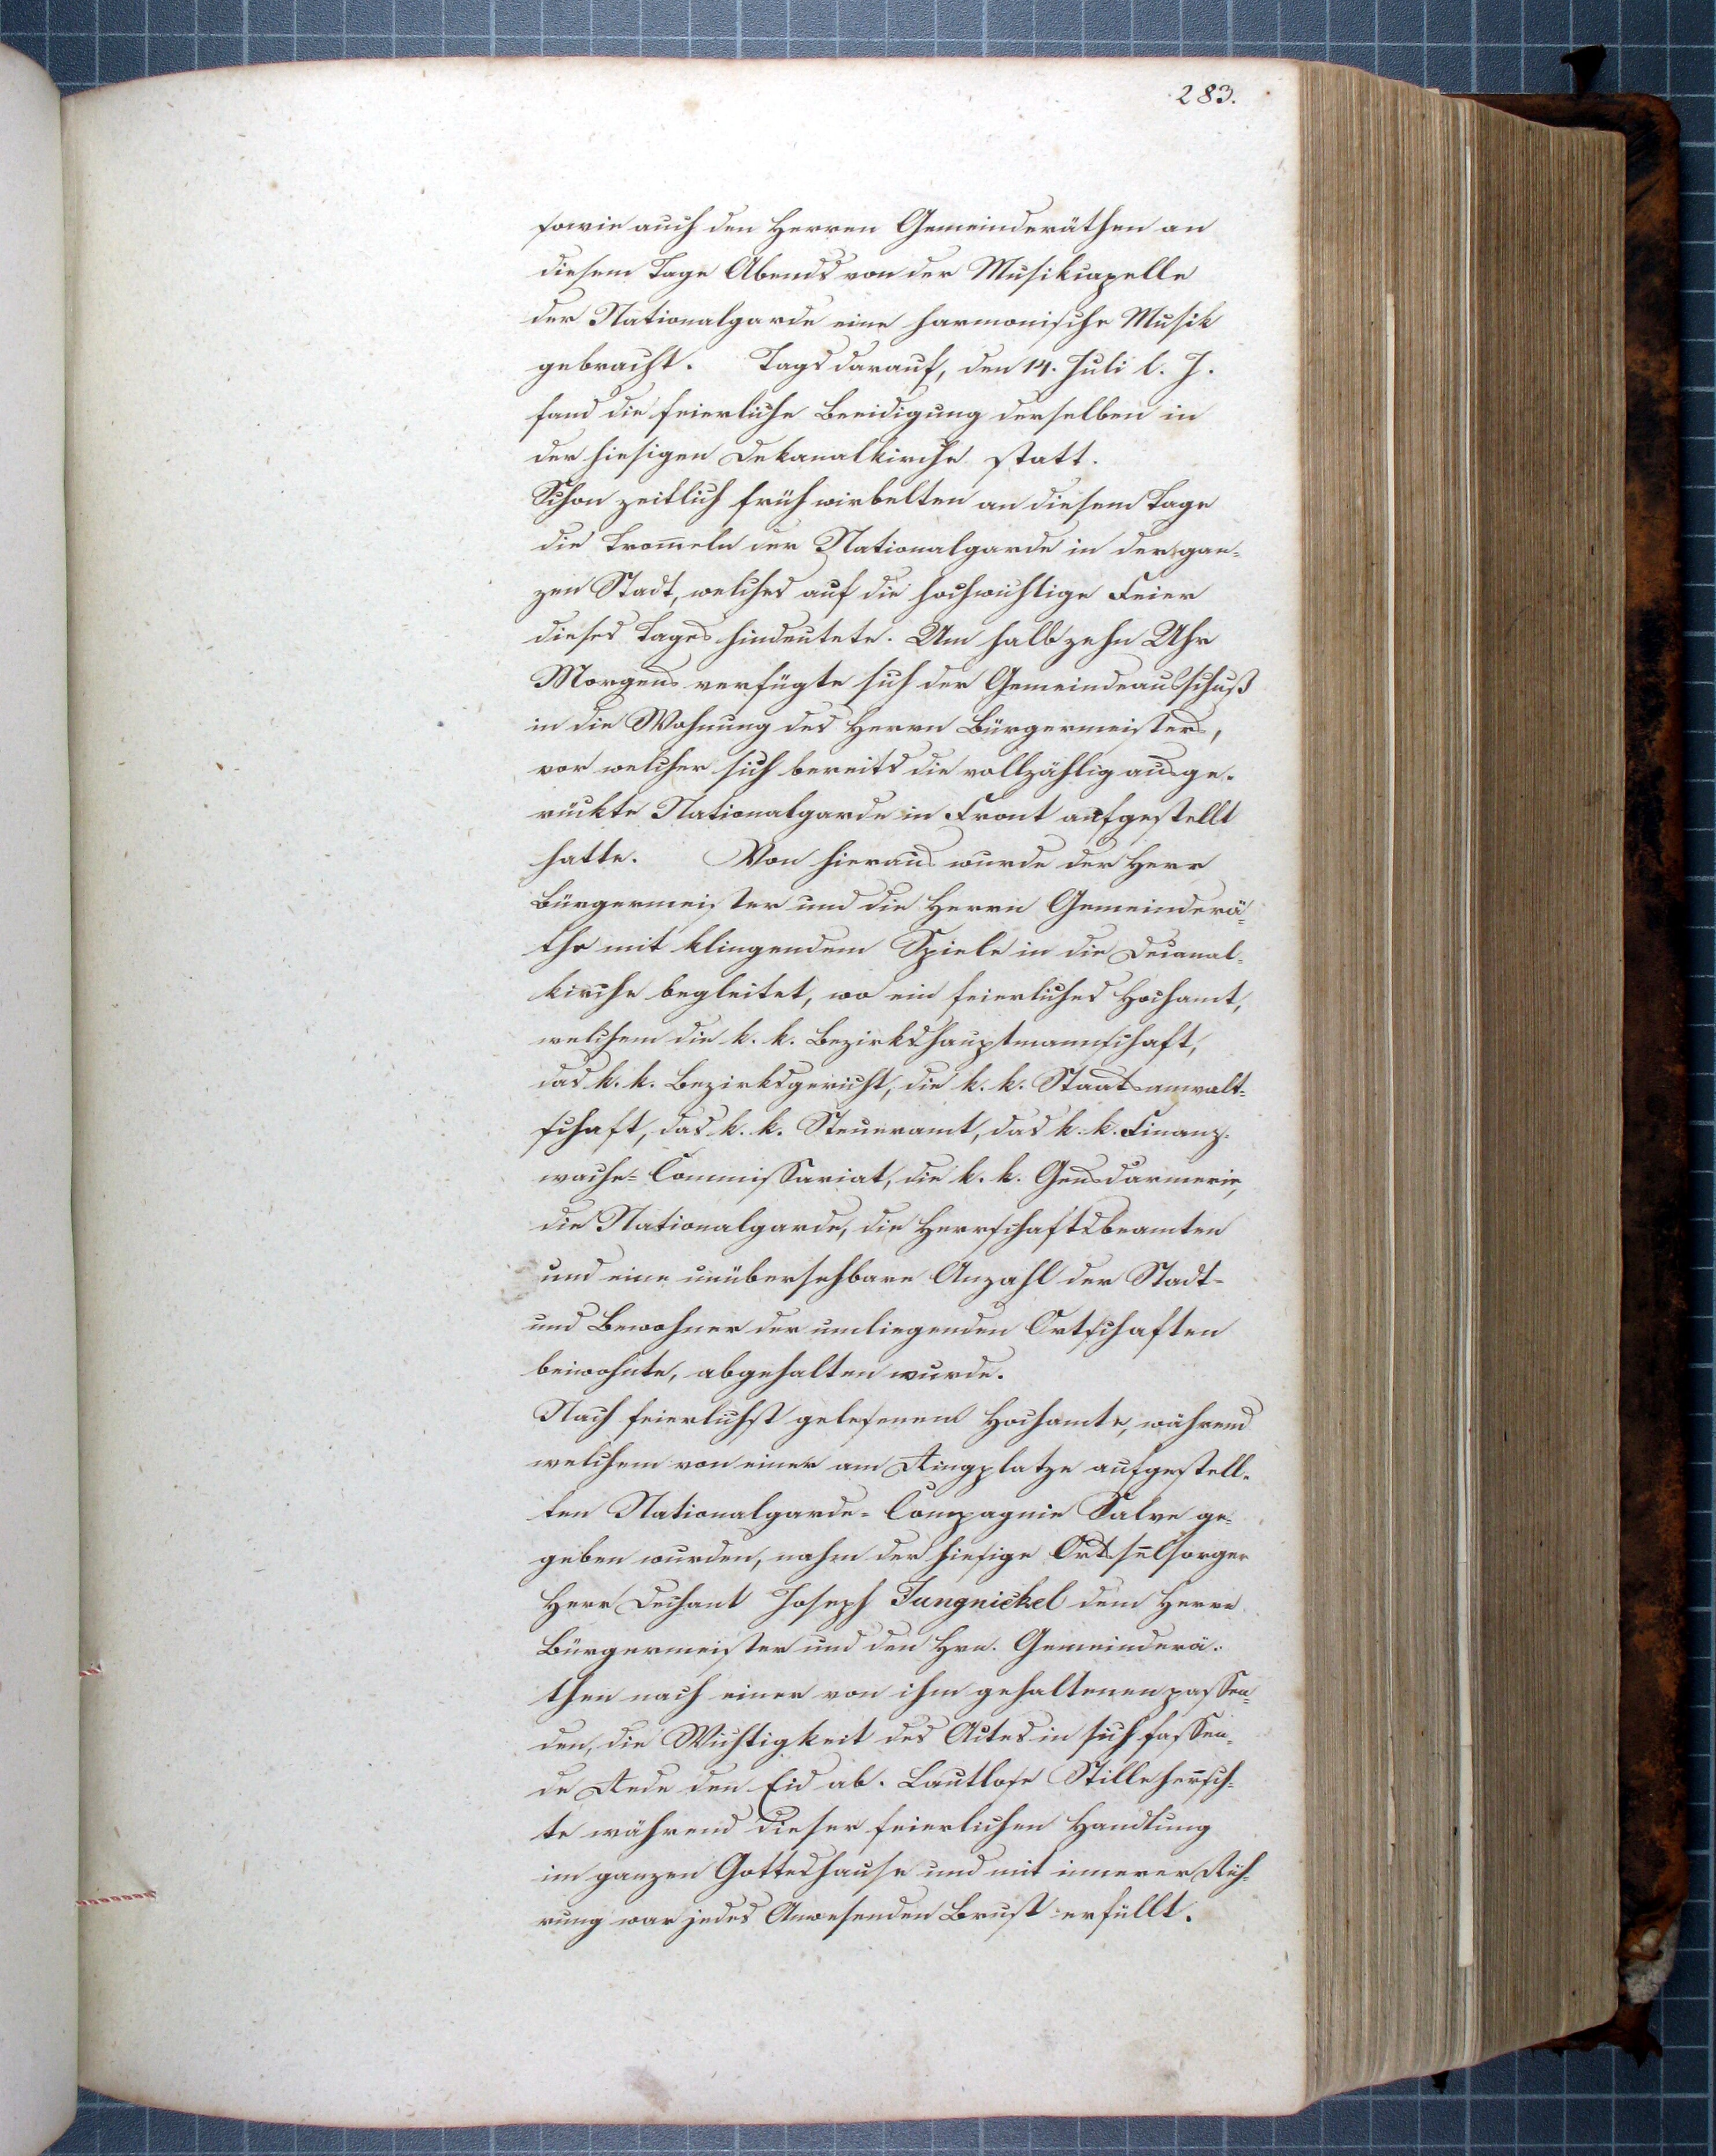 283.
sowie auch den Herren Gemeinderäthen an
diesem Tage Abends von der Musikcapelle
der Nationalgarde eine harmonische Musik
gebracht. Tags darauf, den 14. Juli l. J.
fand die feierliche Beeidigung derselben in
der hiesigen Dekanalkirche statt.
Schon zeitlich früh wirbelten an diesem Tage
die Trom̄eln der Nationalgarde in der gan-
zen Stadt, welches auf die hochwichtige Feier
dieses Tages hindeutete. Um halb zehn Uhr
Morgens verfügte sich der Gemeindeausschuß
in die Wohnung des Herrn Bürgermeisters,
vor welcher sich bereits die vollzählig ausge-
rückte Nationalgarde in Front aufgestellt
hatte. Von hieraus wurde der Herr
Bürgermeister und die Herrn Gemeinderä-
the mit klingendem Spiele in die Decanal-
kirche begleitet, wo ein feierliches Hochamt,
welchem die k. k. Bezirkshauptmannschaft,
das k. k. Bezirksgericht, die k. k. Staatsanwalt-
schaft, das k. k. Steueramt, das k. k. Finanz-
wache-Commissariat, die k. k. Gensdarmerie,
die Nationalgarde, die Herrschaftsbeamten
und eine unübersehbare Anzahl der Stadt-
und Bewohner der umliegenden Ortschaften
beiwohnte, abgehalten wurde.
Nach feierlichst gelesenem Hochamte, während
welchem von einer am Ringplatze aufgestell-
ten Nationalgarde-Compagnie Salve ge-
geben wurden, nahm der hiesige Ortsseelsorger
Herr Dechant Joseph Jungnickel dem Herrn
Bürgermeister und den Hrn. Gemeinderä-
then nach einer von ihm gehaltenen passen-
den, die Wichtigkeit des Actes in sich fassen-
de Rede den Eid ab. Lautlose Stille herrsch-
te während dieser feierlichen Handlung
im ganzen Gotteshause und mit innerer Rüh-
rung war jedes Anwesenden Brust erfüllt.